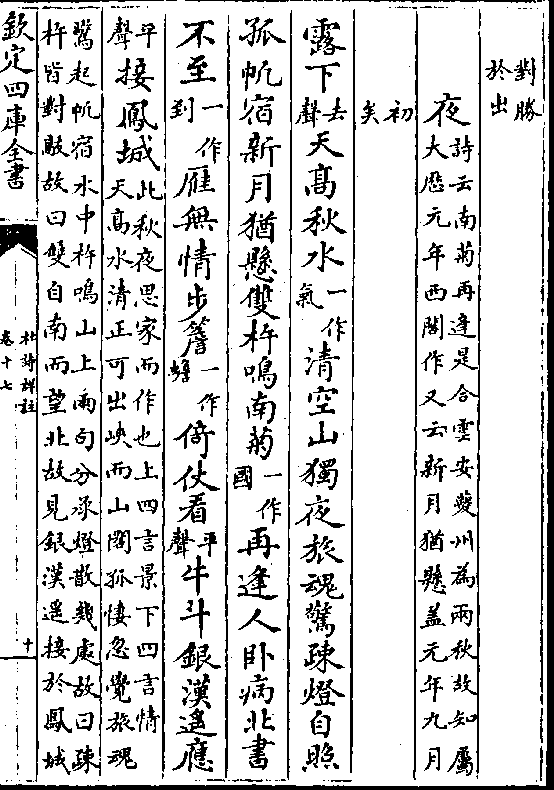 對勝
於出
夜
詩云南菊再逢是合雲安夔州為兩秋故知屬
大厯元年西閣作又云新月猶懸蓋元年九月
初
矣
露下去聲天髙秋水一作氣清空山獨夜旅魂驚疎燈自照
孤帆宿新月猶懸雙杵鳴南菊一作國再逢人卧病北書
不至一作到雁無情步簷一作蟾倚仗看平聲牛斗銀漢遥應
平聲接鳳城此秋夜思家而作也上四言景下四言情
天髙水清正可出峽而山閣孤悽忽覺旅魂
驚起帆宿水中杵鳴山上兩句分承燈散幾處故曰疎
杵皆對敲故曰雙自南而望北故見銀漢遥接於鳳城
欽定四庫全書
杜詩詳註
卷十七
十